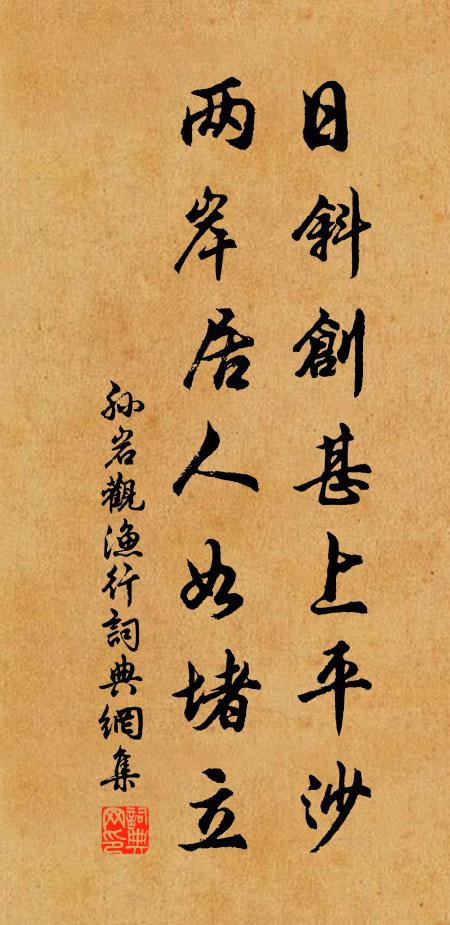 日斜創甚上平沙
两岸居人如堵立
孙岩觀渔行詞典網集
詞典网印